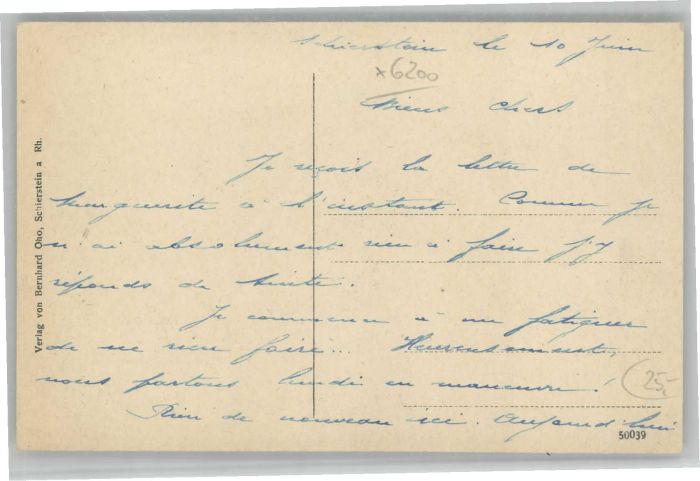 Schierstein le 10 Juin
x6200
Biens chers
Je reçois la lettre de
Marguerite à l'instant. Comme je
n'ai absolument rien à faire j'y
réponds de suite.
Je commence à me fatiguer
de ne rien faire... Heureusement,
nous partons lundi en manœuvre!
25,-
Rien de nouveau ici. Aujourd'hui
50039
Verlag von Bernhard Oho, Schierstein a Rh.